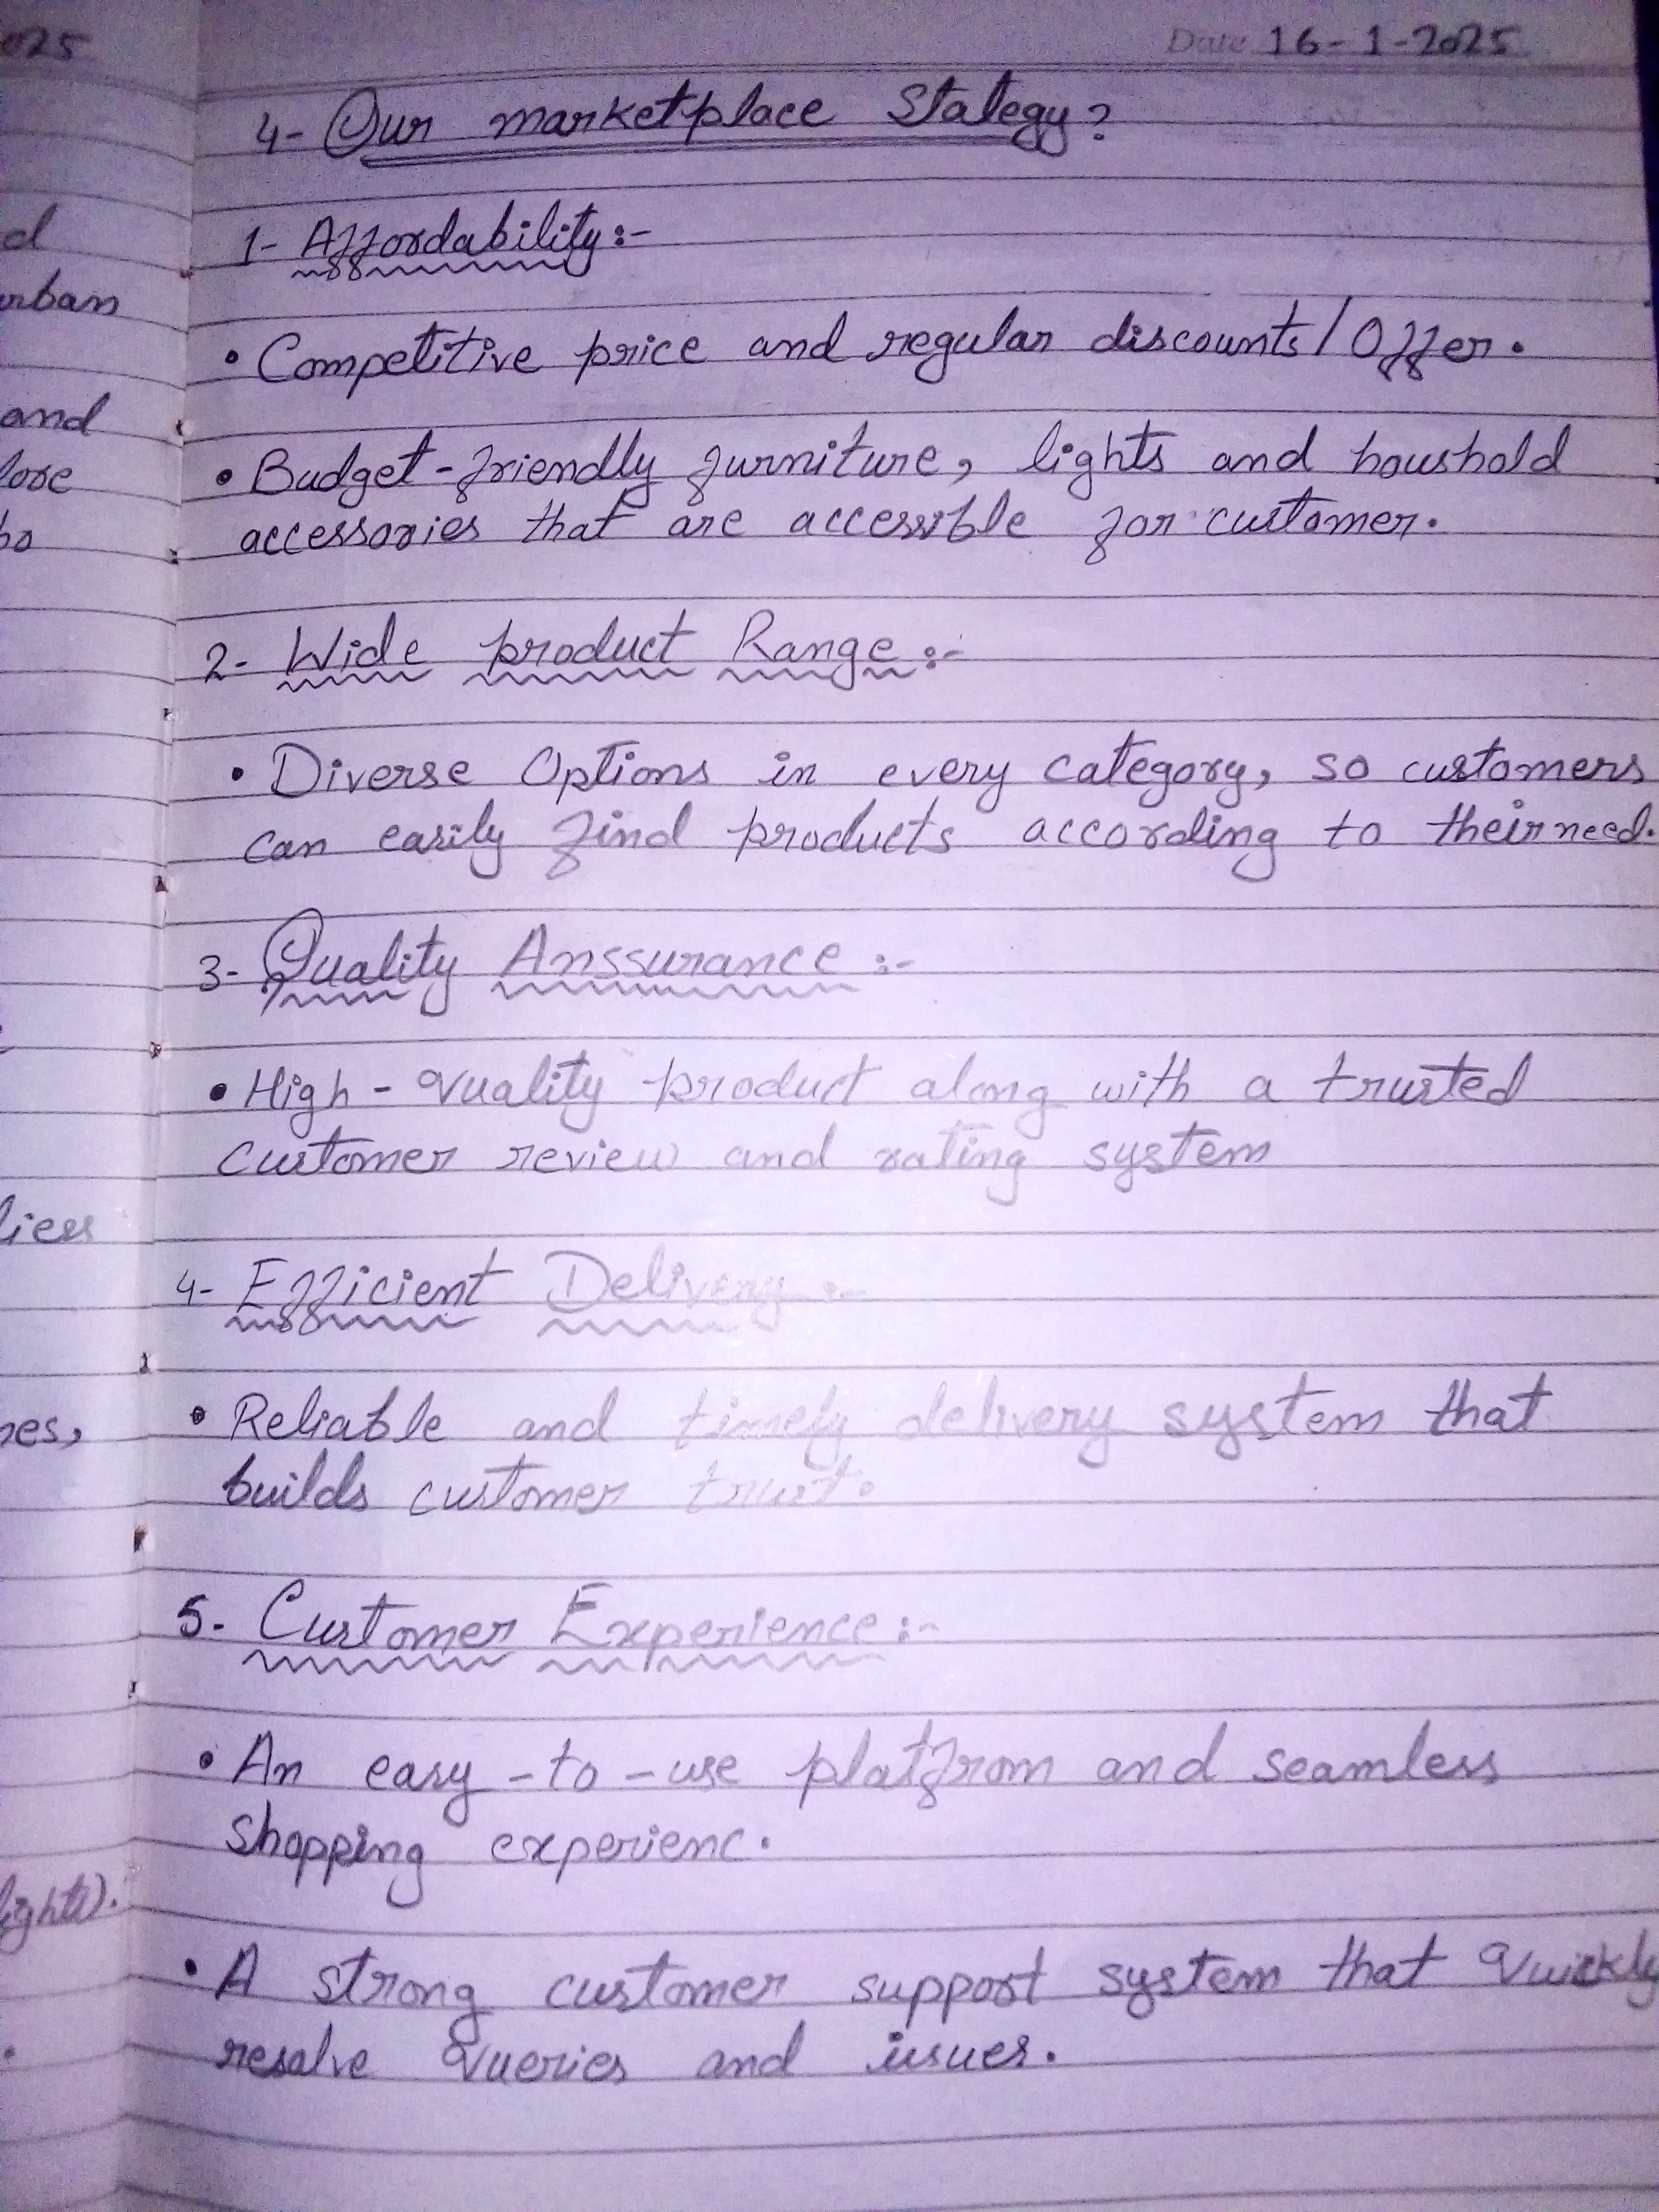 025
Date 16-1-2025
4- Our marketplace Stategy?
1- Affordability:-
• Competitive price and regular discounts/Offer.
• Budget-friendly furniture, lights and houshold
accessories that are accessible for customer.
2- Wide product Range:-
• Diverse Options in every category, so customers
can easily find products according to their need.
3- Quality Anssurance:-
• High-quality product along with a trusted
customer review and rating system
4- Efficient Delivery:-
• Reliable and timely delivery system that
builds customer trust.
5- Customer Experience:-
• An easy-to-use platfrom and seamless
shopping experienc.
• A strong customer support system that quickly
resolve queries and issues.
d
urban
and